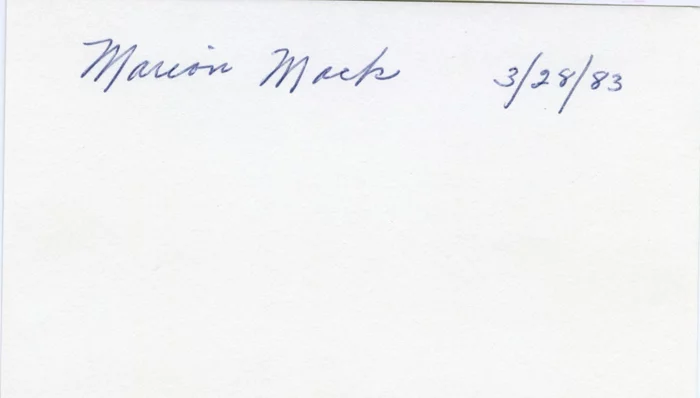 Marion Mack 3/28/83